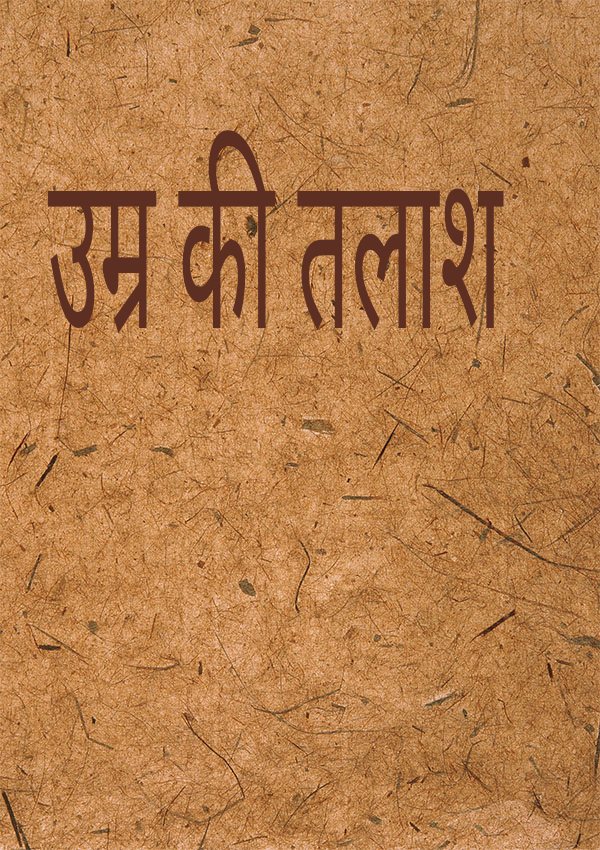 उम्र की तलाश